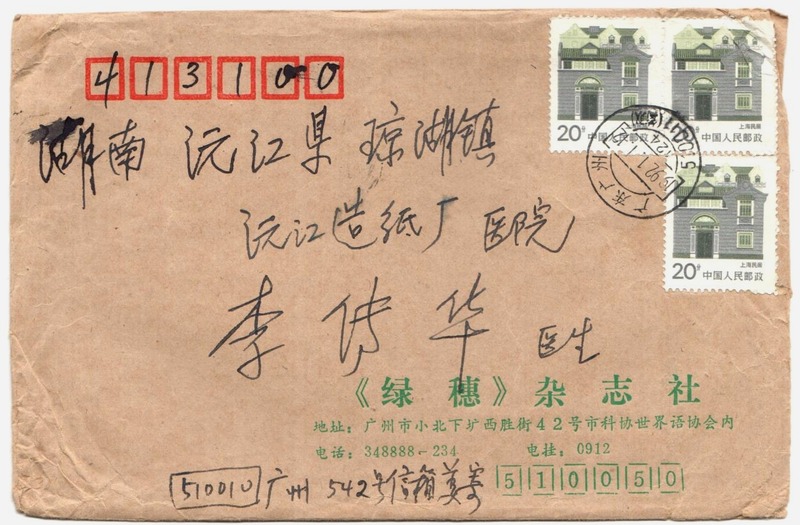 413100
湖南 沅江县 琼湖镇
沅江造纸厂 医院
李传华 医生
20分 中国人民邮政
上海民居
20分 中国人民邮政
上海民居
20分 中国人民邮政
上海民居
广东广州
《绿穗》杂志社
地址：广州市小北下圹西胜街42号市科协世界语协会内
电话：348888-234 电挂：0912
510050
510010 广州 542号信箱 寄